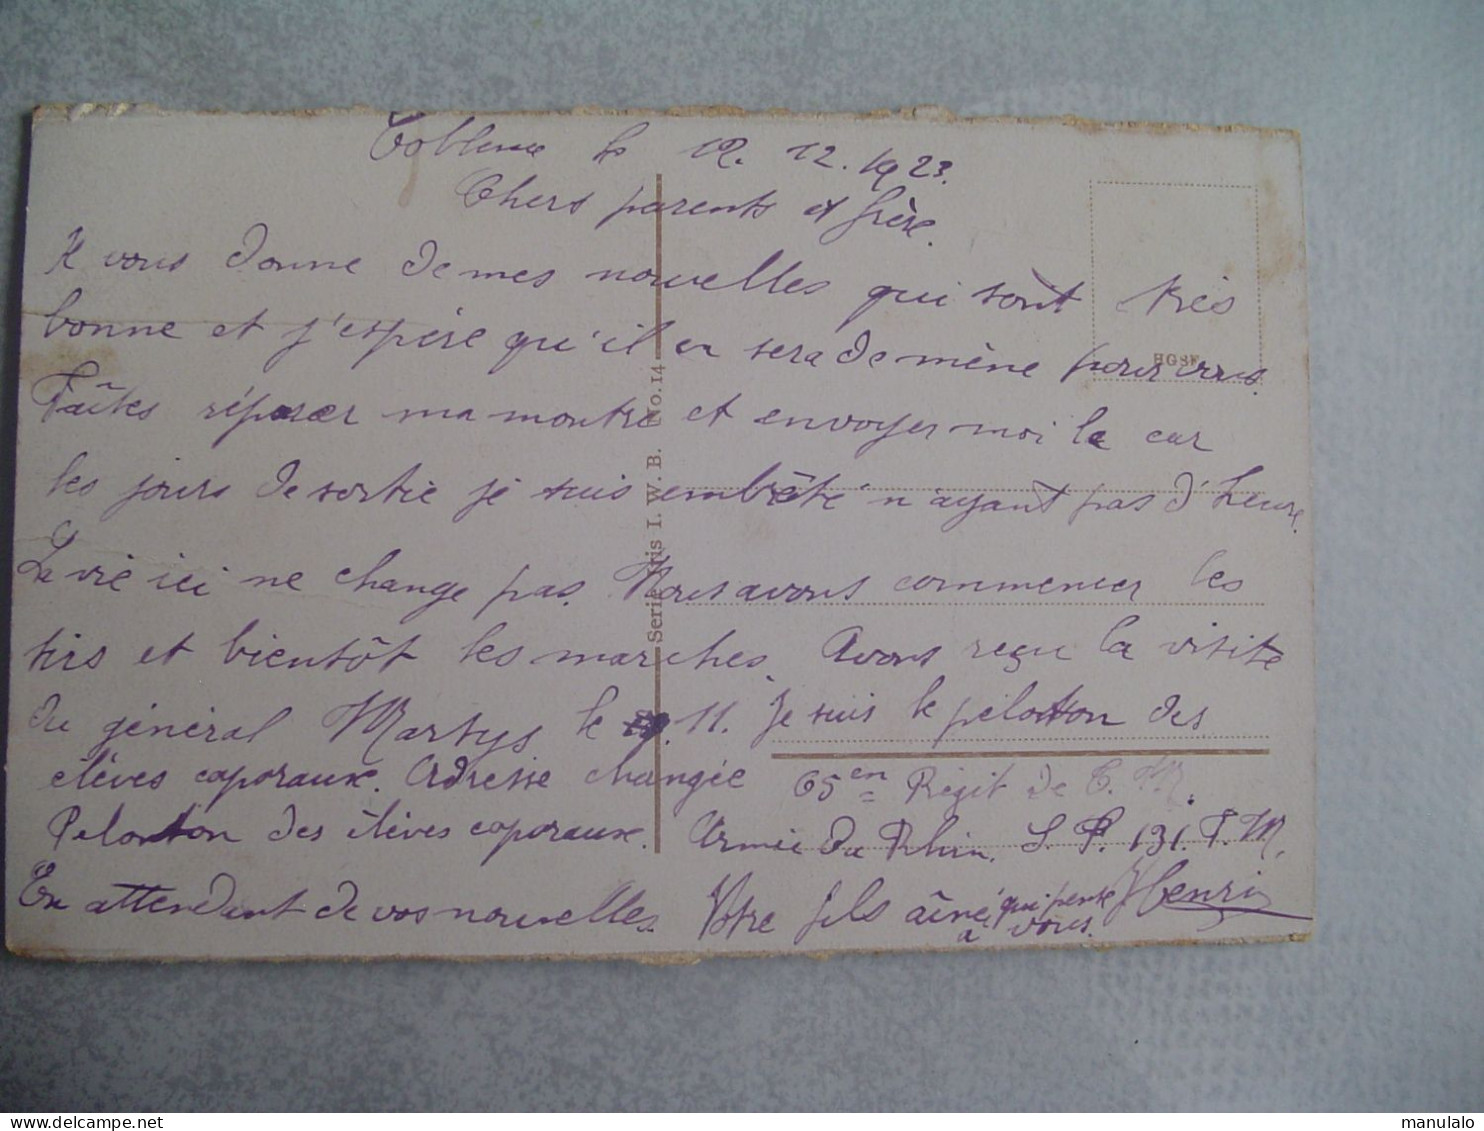 Coblence le 12. 12. 1923.
Chers parents et frère.
Je vous donne de mes nouvelles qui sont très
bonne et j'espère qu'il en sera de mène pour vous.
Faîtes réparer ma montre et envoyer moi la car
les jours de sortie je suis embrêté n'ayant pas d'heure.
La vie ici ne change pas. Nous avons commencer les
tirs et bientôt les marches. Avons reçu la visite
du général Martys le 11. Je suis le peloton des
élèves caporaux. Adresse changée 65en Régit de T. M.
Peloton des élèves caporaux. Armée du Rhin. S. P. 131. T. M.
En attendant de vos nouvelles. Votre fils aîné qui pense
a vous. Henri
Serie Iris I. W. B. No. 14
HGSK
manulalo